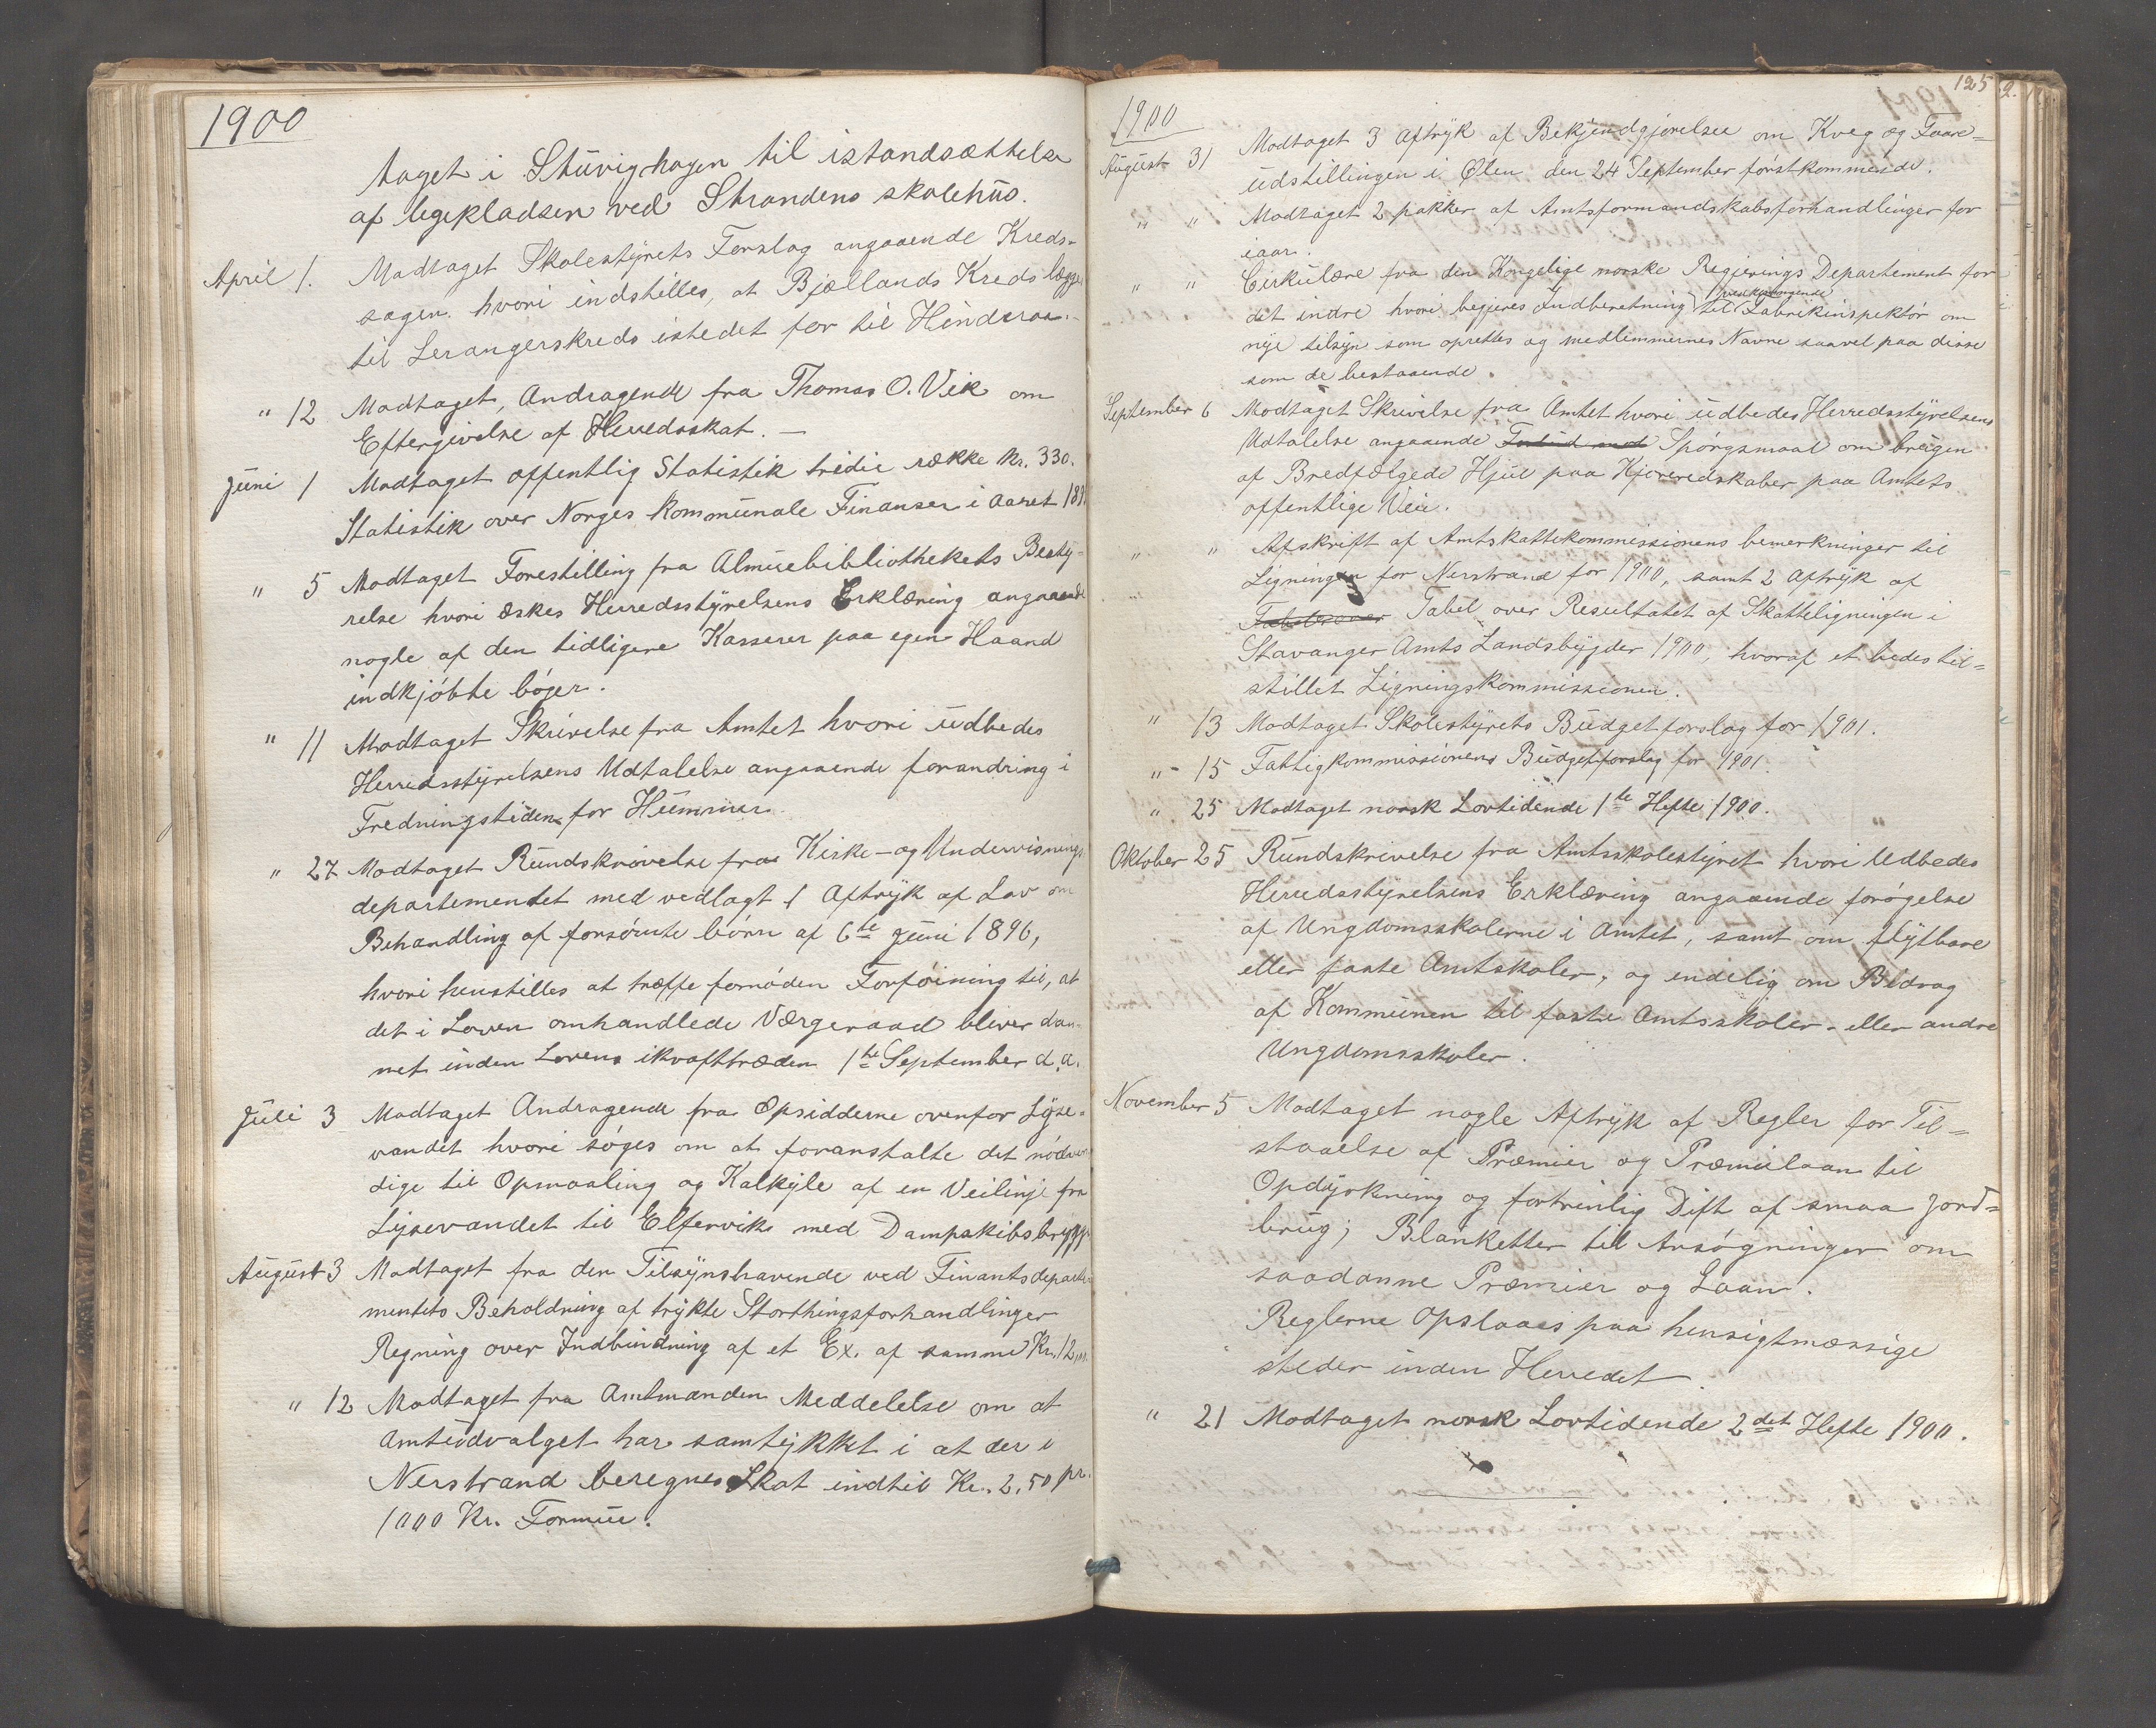 1900
taget i Stüvighagen til istandsættelse
af legepladsen ved Strandens skolehüs.
April 1. Modtaget Skolestÿrets Forslag angaaende Kreds-
sagen. hvori indstilles, at Bjællands Kreds lægges
til Lerangerskreds istedet for til Hinderaa.-
" 12 Modtaget, Andragende fra Thomas O. Vik om
Eftergivelse af Herredsskat. —
Jüni 1 Modtaget offentlig Statistik tredie række Nr. 330.
Statistik over Norges kommünale Finanser i aaret
" 5 Modtaget Forestilling fra Almüebibliothekets Bestÿ-
relse hvori æskes Herredsstÿrelsens Erklæring angaaende
nogle af den tidligere Kasserer paa egen Haand
indkjöbte böger.
" 11 Modtaget Skrivelse fra Amtet hvori üdbedes
Herredsstÿrelsens Udtalelse angaaende forandring i
Fredningstiden for Hümmer
" 27 Modtaget Ründskrivelse fra Kirke- og Undervisnings
departementet med vedlagt 1 Aftrÿk af Lov om
Behandling af forsömte börn af 6te Jüni 1896,
hvori henstilles at træffe fornöden Forföining til, at
det i Loven omhandlede Værgeraad bliver dan-
net inden Lovens ikrafttræden 1te September d.a.
Jüli 3 Modtaget Andragende fra Opsidderne ovenfor Lÿse-
vandet hvori söges om at foranstalte det nödven
dige til Opmaaling og Kalkÿle af en Veilinje fra
Lÿsevandet til Elfervik med Dampskibsbrÿgge
Aügust 3 Modtaget fra den Tilsÿnshavende ved Finantsdeparte-
mentets Beholdning af trÿkte Storthingsforhandlinger
Regning over Indbindning af et Ex. af samme Kr. 12,00.
" 12 Modtaget fra Amtmanden Meddelelse om at
Amtüdvalget har samtÿkket i at der i
Nerstrand beregnes Skat indtil Kr. 2,50 pr.
1000 Kr. Formüe.
125
2.
1900
Aügust 31 Modtaget 3 aftrÿk af Bekjendtgjörelse om Kvæg og Faare=
üdstillingen i Ølen den 24 September förstkommende.
" " Modtaget 2 pakker af Amtsformandskabsforhandlinger for
iaar.
" " Cirkülære fra den Kongelige norske Regjerings Departement for
det indre hvori begjeres Indberetning til vedkommende Fabrikinspektör om
nye tilsÿn som oprettes og medlemmernes Navne saavel paa disse
som de bestaaende.
September 6 Modtaget Skrivelse fra Amtet hvori üdbedes Herredsstÿrelsens
Udtalelse angaaende Forbüd mod Spörgsmaal om brügen
af Bredfælgede Hjül paa Kjöreredskaber paa Amtets
offentlige Veie.
" " Afskrift af Amtskattekommissionens bemerkninger til
Ligningen for Nerstrand for 1900, samt 2 aftrÿk af
Tabel over Resultatet af Skatteligningen i
Stavanger Amts Landsbÿgder 1900, hvoraf et bedes til=
stillet Ligningskommissionen.
" 13 Modtaget Skolestÿrets Büdgetforslag for 1901.
" - 15 Fattigkommissionens Büdgetforslag for 1901.
" 25 Modtaget norsk Lovtidende 1te Hefte 1900.
Oktober 25 Ründskrivelse fra Amtsskolestÿret hvori Udbedes
Herredsstÿrelsens Erklæring angaaende forögelse
af Ungdomsskolerne i Amtet, samt om flÿtbare
eller faste Amtskoler, og endelig om Bidrag
af Kommünen til faste Amtsskoler - eller andre
Ungdomsskoler.
November 5 Modtaget nogle Aftrÿk af Regler for Til=
staaelse af Præmier og Præmielaan til
Opdÿrkning og fortrinlig Dift af smaa Jord=
brüg; Blanketter til Ansögninger om
saadanne Præmier og Laan.
Reglerne opslaaes paa hensigtmæssige
steder inden Herredet.
" 21 Modtaget norsk Lovtidende 2det Hefte 1900.